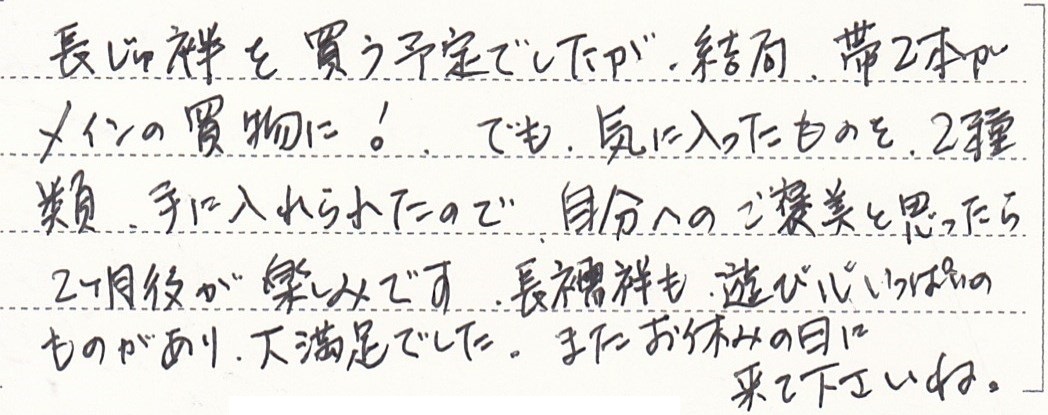 長じゅ袢を買う予定でしたが、結局、帯2本が
メインの買物に！、でも、気に入ったものを、2種
類、手に入れられたので、自分へのご褒美と思ったら
2ヶ月後が楽しみです、長襦袢も、遊び心いっぱいの
ものがあり、大満足でした。またお休みの日に
来て下さいね。